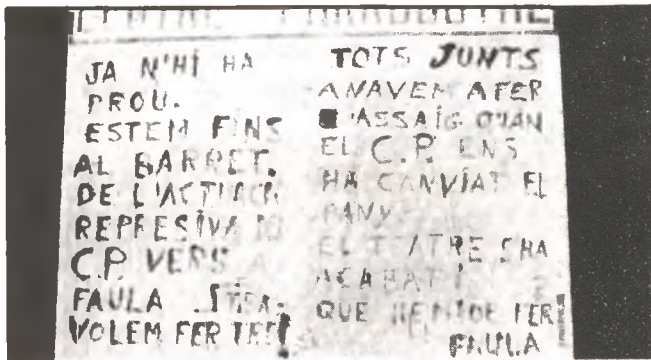 CENTRE PARROQUIAL
JA N'HÍ HA
PROU.
ESTEM FINS
AL BARRET.
DE L'ACTUACIÓ
REPRESÍVA DEL
C.P. VERS A
FAULA
VOLEM FER TEATRE
TOTS JUNTS
ANAVEM A FER
L'ASSAÍG QUAN
EL C.P. ENS
HA CANVÍAT EL
PANY
EL TEATRE S'HA
ACABAT
QUE HEM DE FER
FAULA